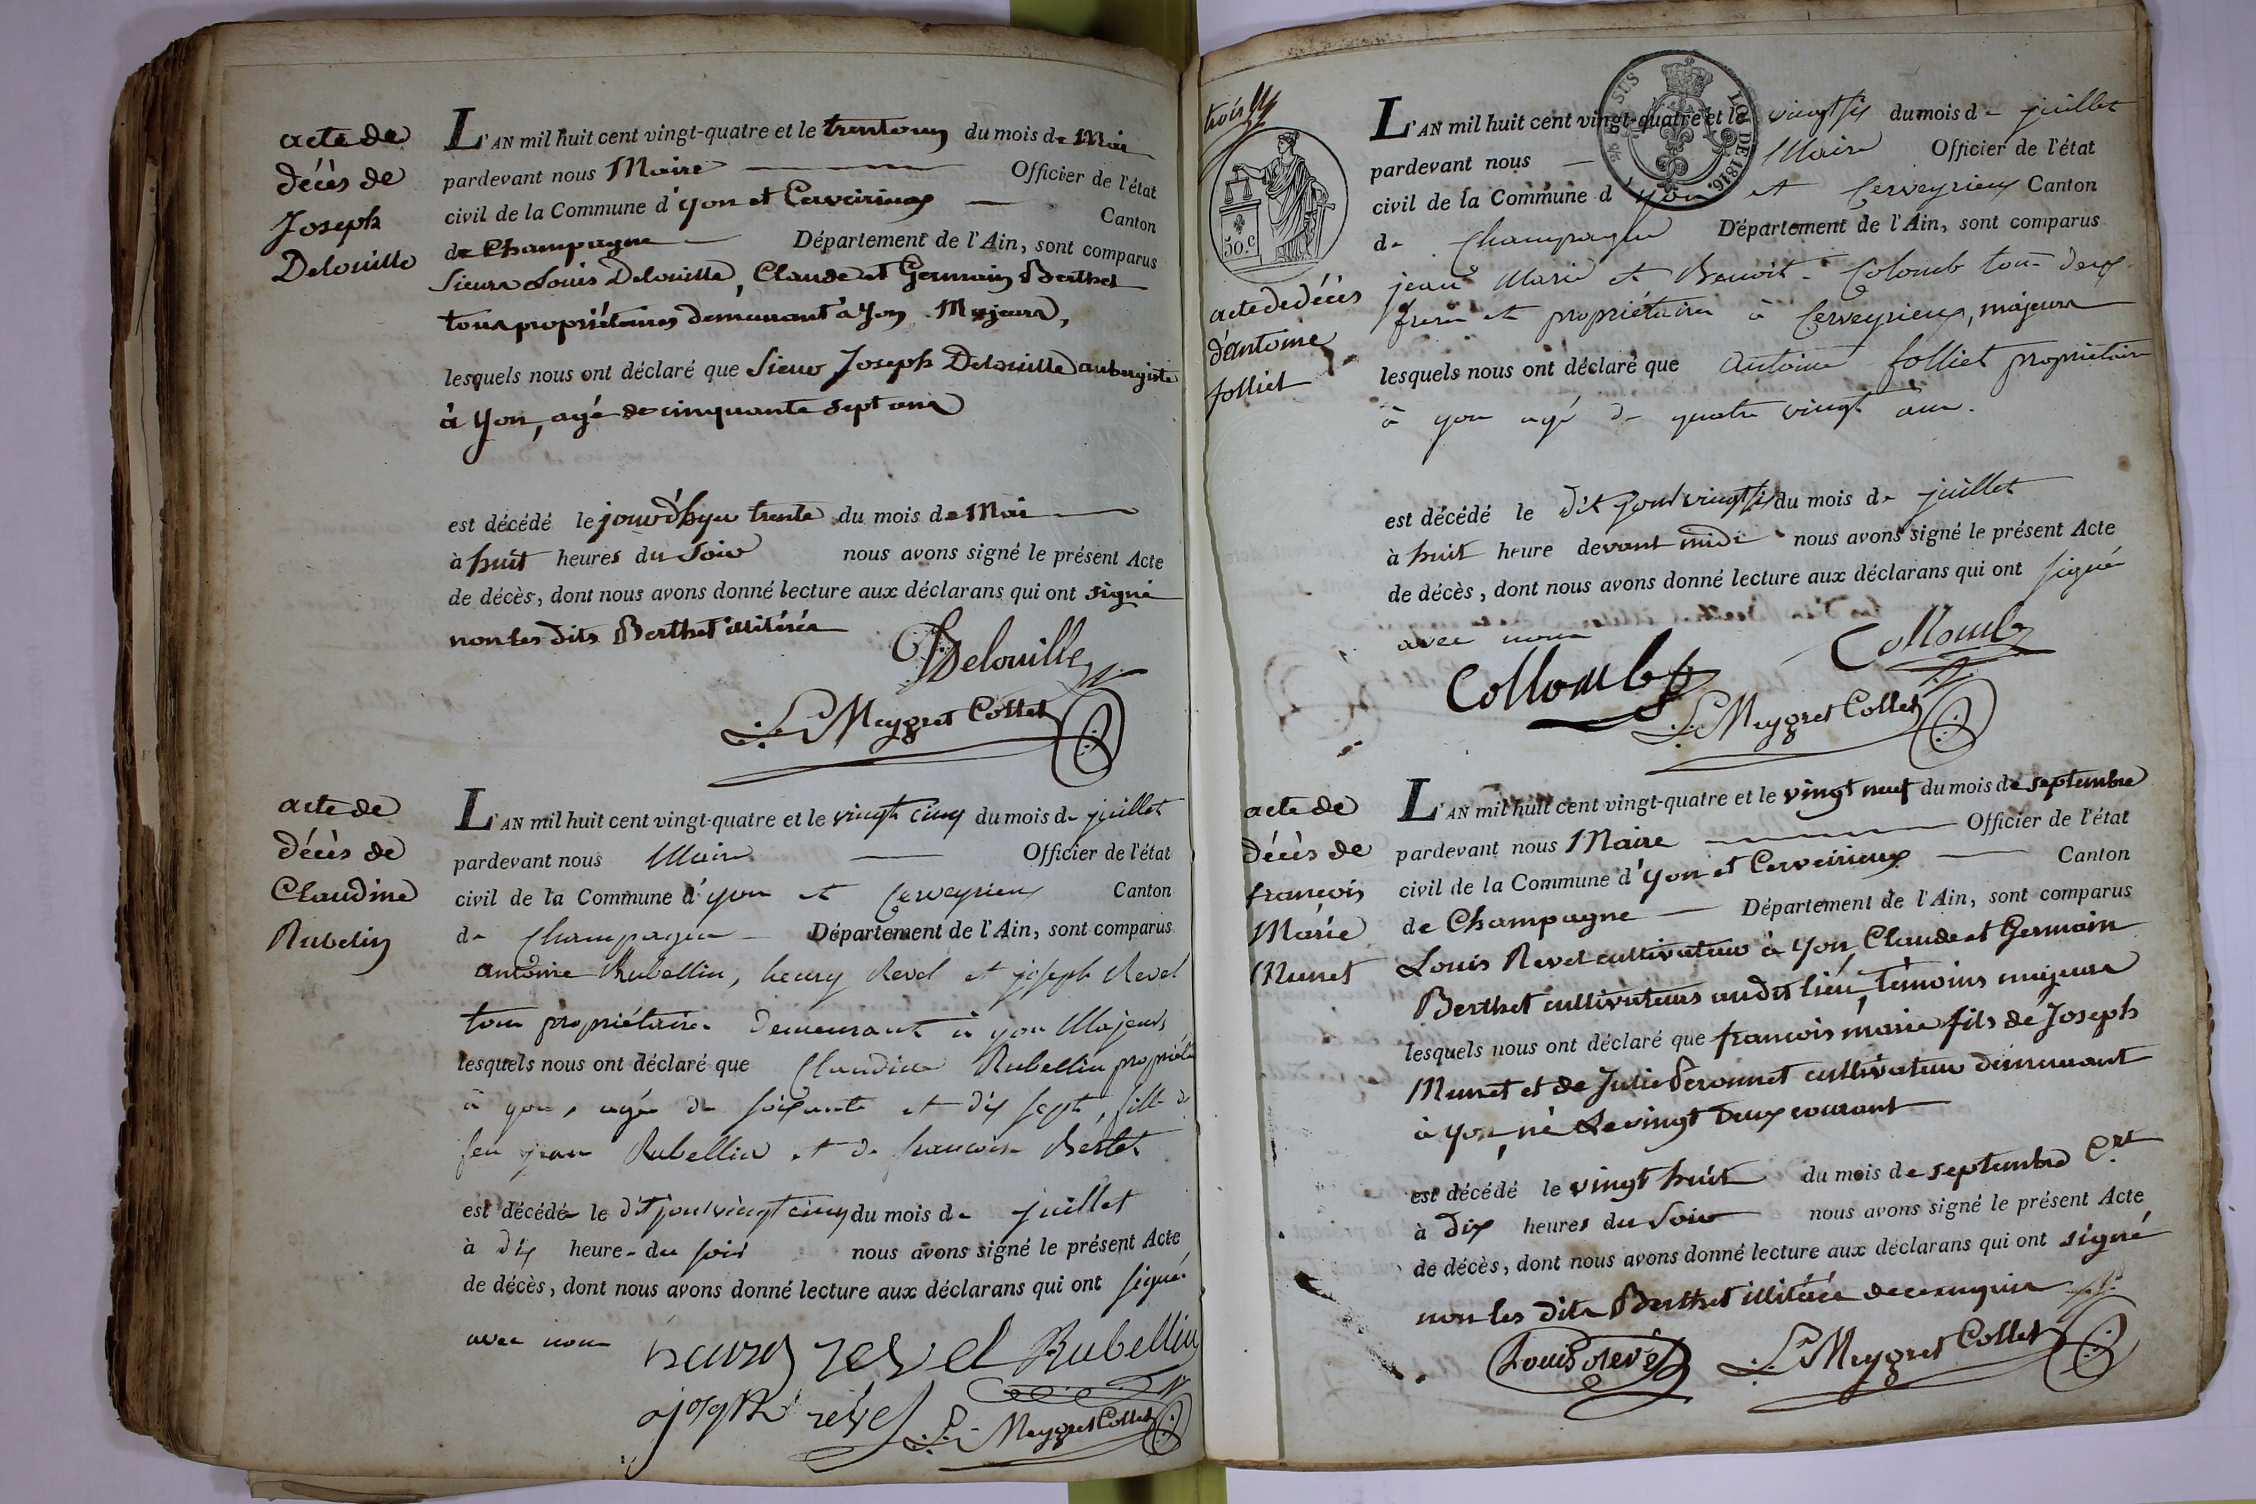 acte de
décès de
Joseph
Delouille
L'AN mil huit cent vingt-quatre et le trenteun du mois de Mai
pardevant nous Maire Officier de l'état
civil de la Commune d'yon et Cerveirieux Canton
de Champagne Département de l'Ain, sont comparus
Sieurs Louis Delouille, Claude et Germain Berthet
tous propriétaires demeurant à Yon Majeurs,
lesquels nous ont déclaré que Sieur Joseph Delouille aubergiste
à Yon, agé de cinquante sept ans
est décédé le jourd'hyer trente du mois de Mai
à huit heures du Soir nous avons signé le présent Acte
de décès, dont nous avons donné lecture aux déclarans qui ont signé
non les dits Berthet illitérés
Delouille
Meygret Collet
acte de
décès de
Claudine
Rubelin
L'AN mil huit cent vingt-quatre et le vingt cinq du mois de juillet
pardevant nous Maire Officier de l'état
civil de la Commune d'yon et Cerveyrieux Canton
de Champagne Département de l'Ain, sont comparus
antoine Rubellin, henry Revel et joseph Revel
tous propriétaires demeurant à yon Majeurs
lesquels nous ont déclaré que Claudine Rubellin propriét
à yon, agée de soixante et dix sept, fille de
feu jean Rubellin et de francoise Bertet
est décédée le dit jour vingt cinq du mois de juillet
à dix heure du soir nous avons signé le présent Acte
de décès, dont nous avons donné lecture aux déclarans qui ont signé
avec nous
henry revel Rubellin
joseph revel Meygret Collet
trois
50.c
LOI DE 1816.
acte de décès
d'antoine
folliet
L'AN mil huit cent vingt-quatre et le vingt six du mois de juillet
pardevant nous Maire Officier de l'état
civil de la Commune d yon et Cerveyrieux Canton
de Champagne Département de l'Ain, sont comparus
jean Marie et Benoit Colomb tous deux
freres et propriétaires à Cerveyrieux, majeurs
lesquels nous ont déclaré que antoine folliet propriétaire
à yon agé de quatre vingt ans.
est décédé le dit jour vingt six du mois de juillet
à huit heure devant midi nous avons signé le présent Acte
de décès, dont nous avons donné lecture aux déclarans qui ont signé
avec nous
Collomb
Collomb
Meygret Collet
acte de
décès de
francois
Marie
Munet
L'AN mil huit cent vingt-quatre et le vingt neuf du mois de septembre
pardevant nous Maire Officier de l'état
civil de la Commune d'yon et Cerveirieux Canton
de Champagne Département de l'Ain, sont comparus
Louis Revel cultivateur à Yon, Claude et Germain
Berthet cultivateurs au dit lieu, témoins majeurs
lesquels nous ont déclaré que francois marie fils de Joseph
Munet et de Julie Peronnet cultivateur demeurant
à Yon, né Le vingt deux courant
est décédé le vingt huit du mois de septembre Crt
à dix heures du Soir nous avons signé le présent Acte
de décès, dont nous avons donné lecture aux déclarans qui ont signé
non les dits Berthet illitérés de ce enquis
Louis revel Meygret Collet